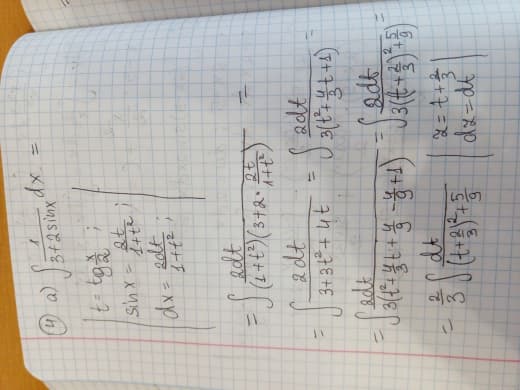 ④ a) ∫ 1/(3+2sinx) dx =
| t = tg x/2 ;
sinx = 2t/(1+t²) ;
dx = 2dt/(1+t²) ; |
= ∫ 2dt/((1+t²)(3+2·2t/(1+t²))) =
= ∫ 2dt/(3+3t²+4t) = ∫ 2dt/(3(t²+4/3 t+1)) =
= ∫ 2dt/(3(t²+4/3 t+4/9-4/9+1)) = ∫ 2dt/(3((t+2/3)²+5/9)) =
= 2/3 ∫ dt/((t+2/3)²+5/9) | z = t+2/3
dz = dt |